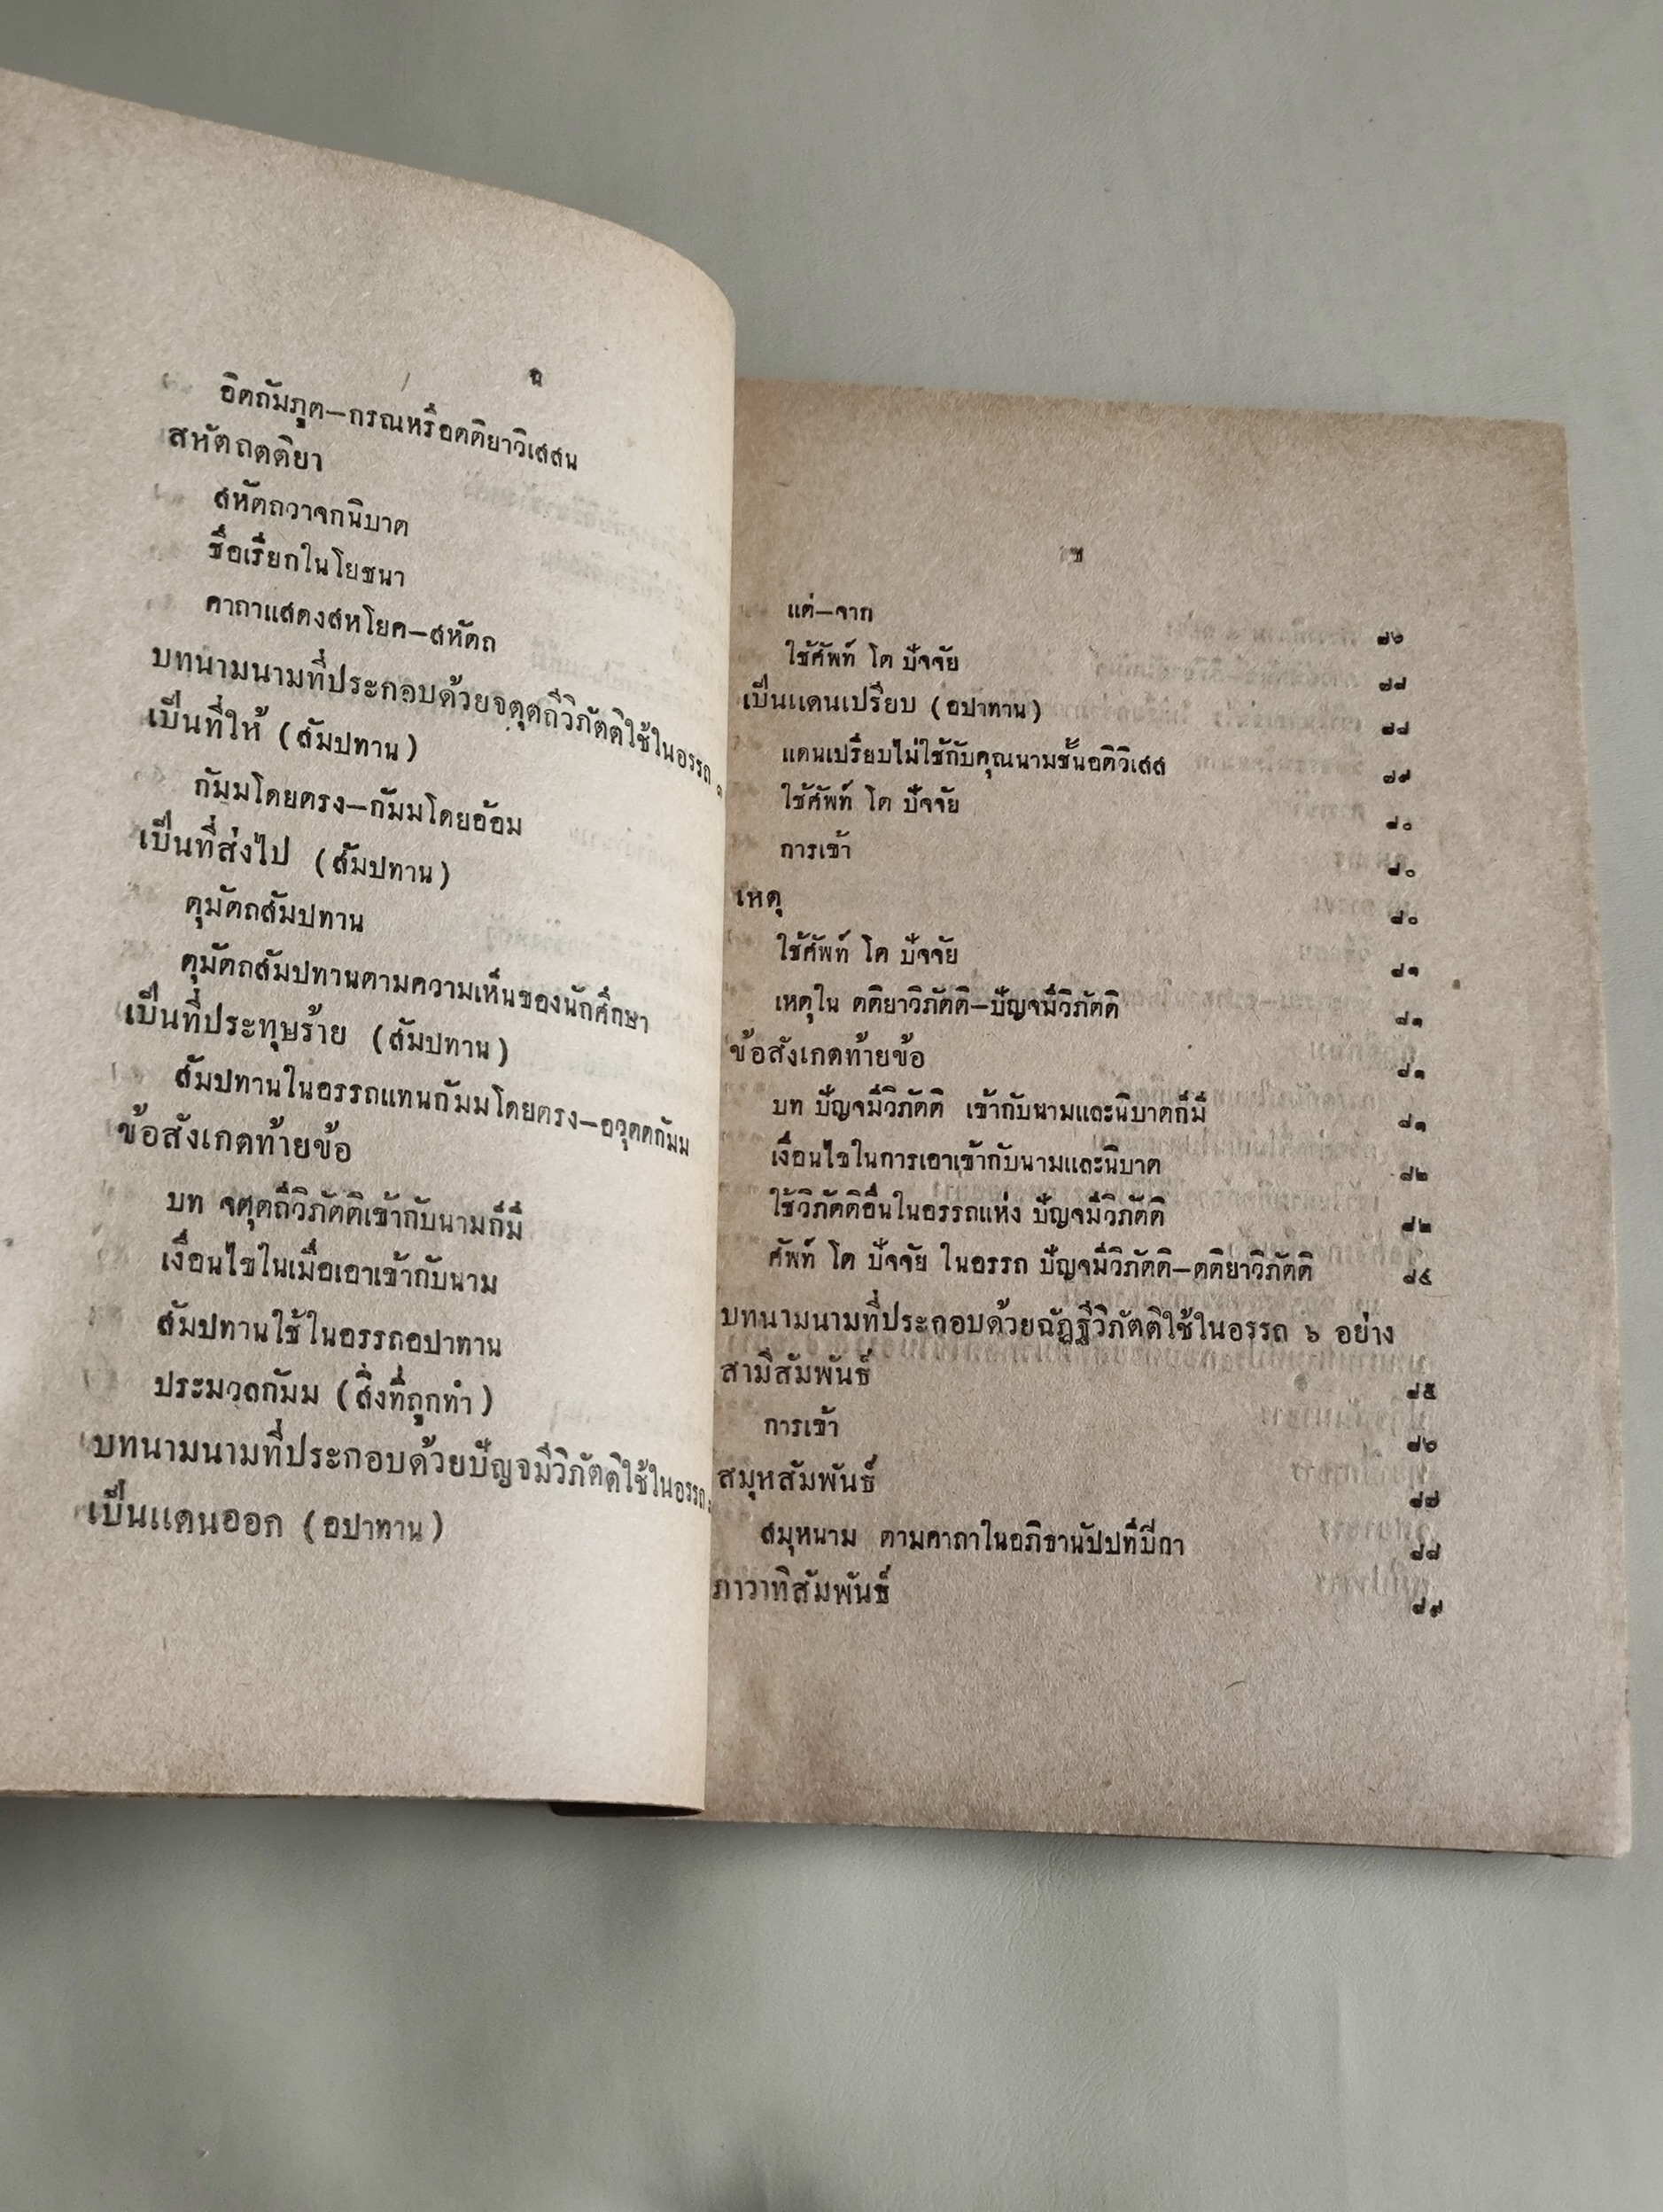 ฉ
อิตถัมภูต—กรณหรือตติยาวิเสสน
สหัตถตติยา
สหัตถวาจกนิบาต
ชื่อเรียกในโยชนา
คาถาแสดงสหโยค—สหัตถ
บทนามนามที่ประกอบด้วยจตุตถีวิภัตติใช้ในอรรถ
เป็นที่ให้ (สัมปทาน)
กัมมโดยตรง—กัมมโดยอ้อม
เป็นที่ส่งไป (สัมปทาน)
ตุมัตถสัมปทาน
ตุมัตถสัมปทานตามความเห็นของนักศึกษา
เป็นที่ประทุษร้าย (สัมปทาน)
สัมปทานในอรรถแทนกัมมโดยตรง—อวุตตกัมม
ข้อสังเกตท้ายข้อ
บท จตุตถีวิภัตติเข้ากับนามก็มี
เงื่อนไขในเมื่อเอาเข้ากับนาม
สัมปทานใช้ในอรรถอปาทาน
ประมวลกัมม (สิ่งที่ถูกทำ)
บทนามนามที่ประกอบด้วยปัญจมีวิภัตติใช้ในอรรถ
เป็นแดนออก (อปาทาน)
ช
แต่—จาก ๗๖
ใช้ศัพท์ โต ปัจจัย ๗๗
เป็นแดนเปรียบ (อปาทาน) ๗๘
แดนเปรียบไม่ใช้กับคุณนามชั้นอติวิเสส ๗๙
ใช้ศัพท์ โต ปัจจัย ๘๐
การเข้า ๘๐
เหตุ ๘๐
ใช้ศัพท์ โต ปัจจัย ๘๑
เหตุใน ตติยาวิภัตติ—ปัญจมีวิภัตติ ๘๑
ข้อสังเกตท้ายข้อ ๘๑
บท ปัญจมีวิภัตติ เข้ากับนามและนิบาตก็มี ๘๑
เงื่อนไขในการเอาเข้ากับนามและนิบาต ๘๒
ใช้วิภัตติอื่นในอรรถแห่ง ปัญจมีวิภัตติ ๘๒
ศัพท์ โต ปัจจัย ในอรรถ ปัญจมีวิภัตติ—ตติยาวิภัตติ ๘๔
บทนามนามที่ประกอบด้วยฉัฏฐีวิภัตติใช้ในอรรถ ๖ อย่าง
สามีสัมพันธ์ ๘๕
การเข้า ๘๖
สมุหสัมพันธ์ ๘๗
สมุหนาม ตามคาถาในอภิธานัปปทีปิกา ๘๘
ภาวาทิสัมพันธ์ ๘๙